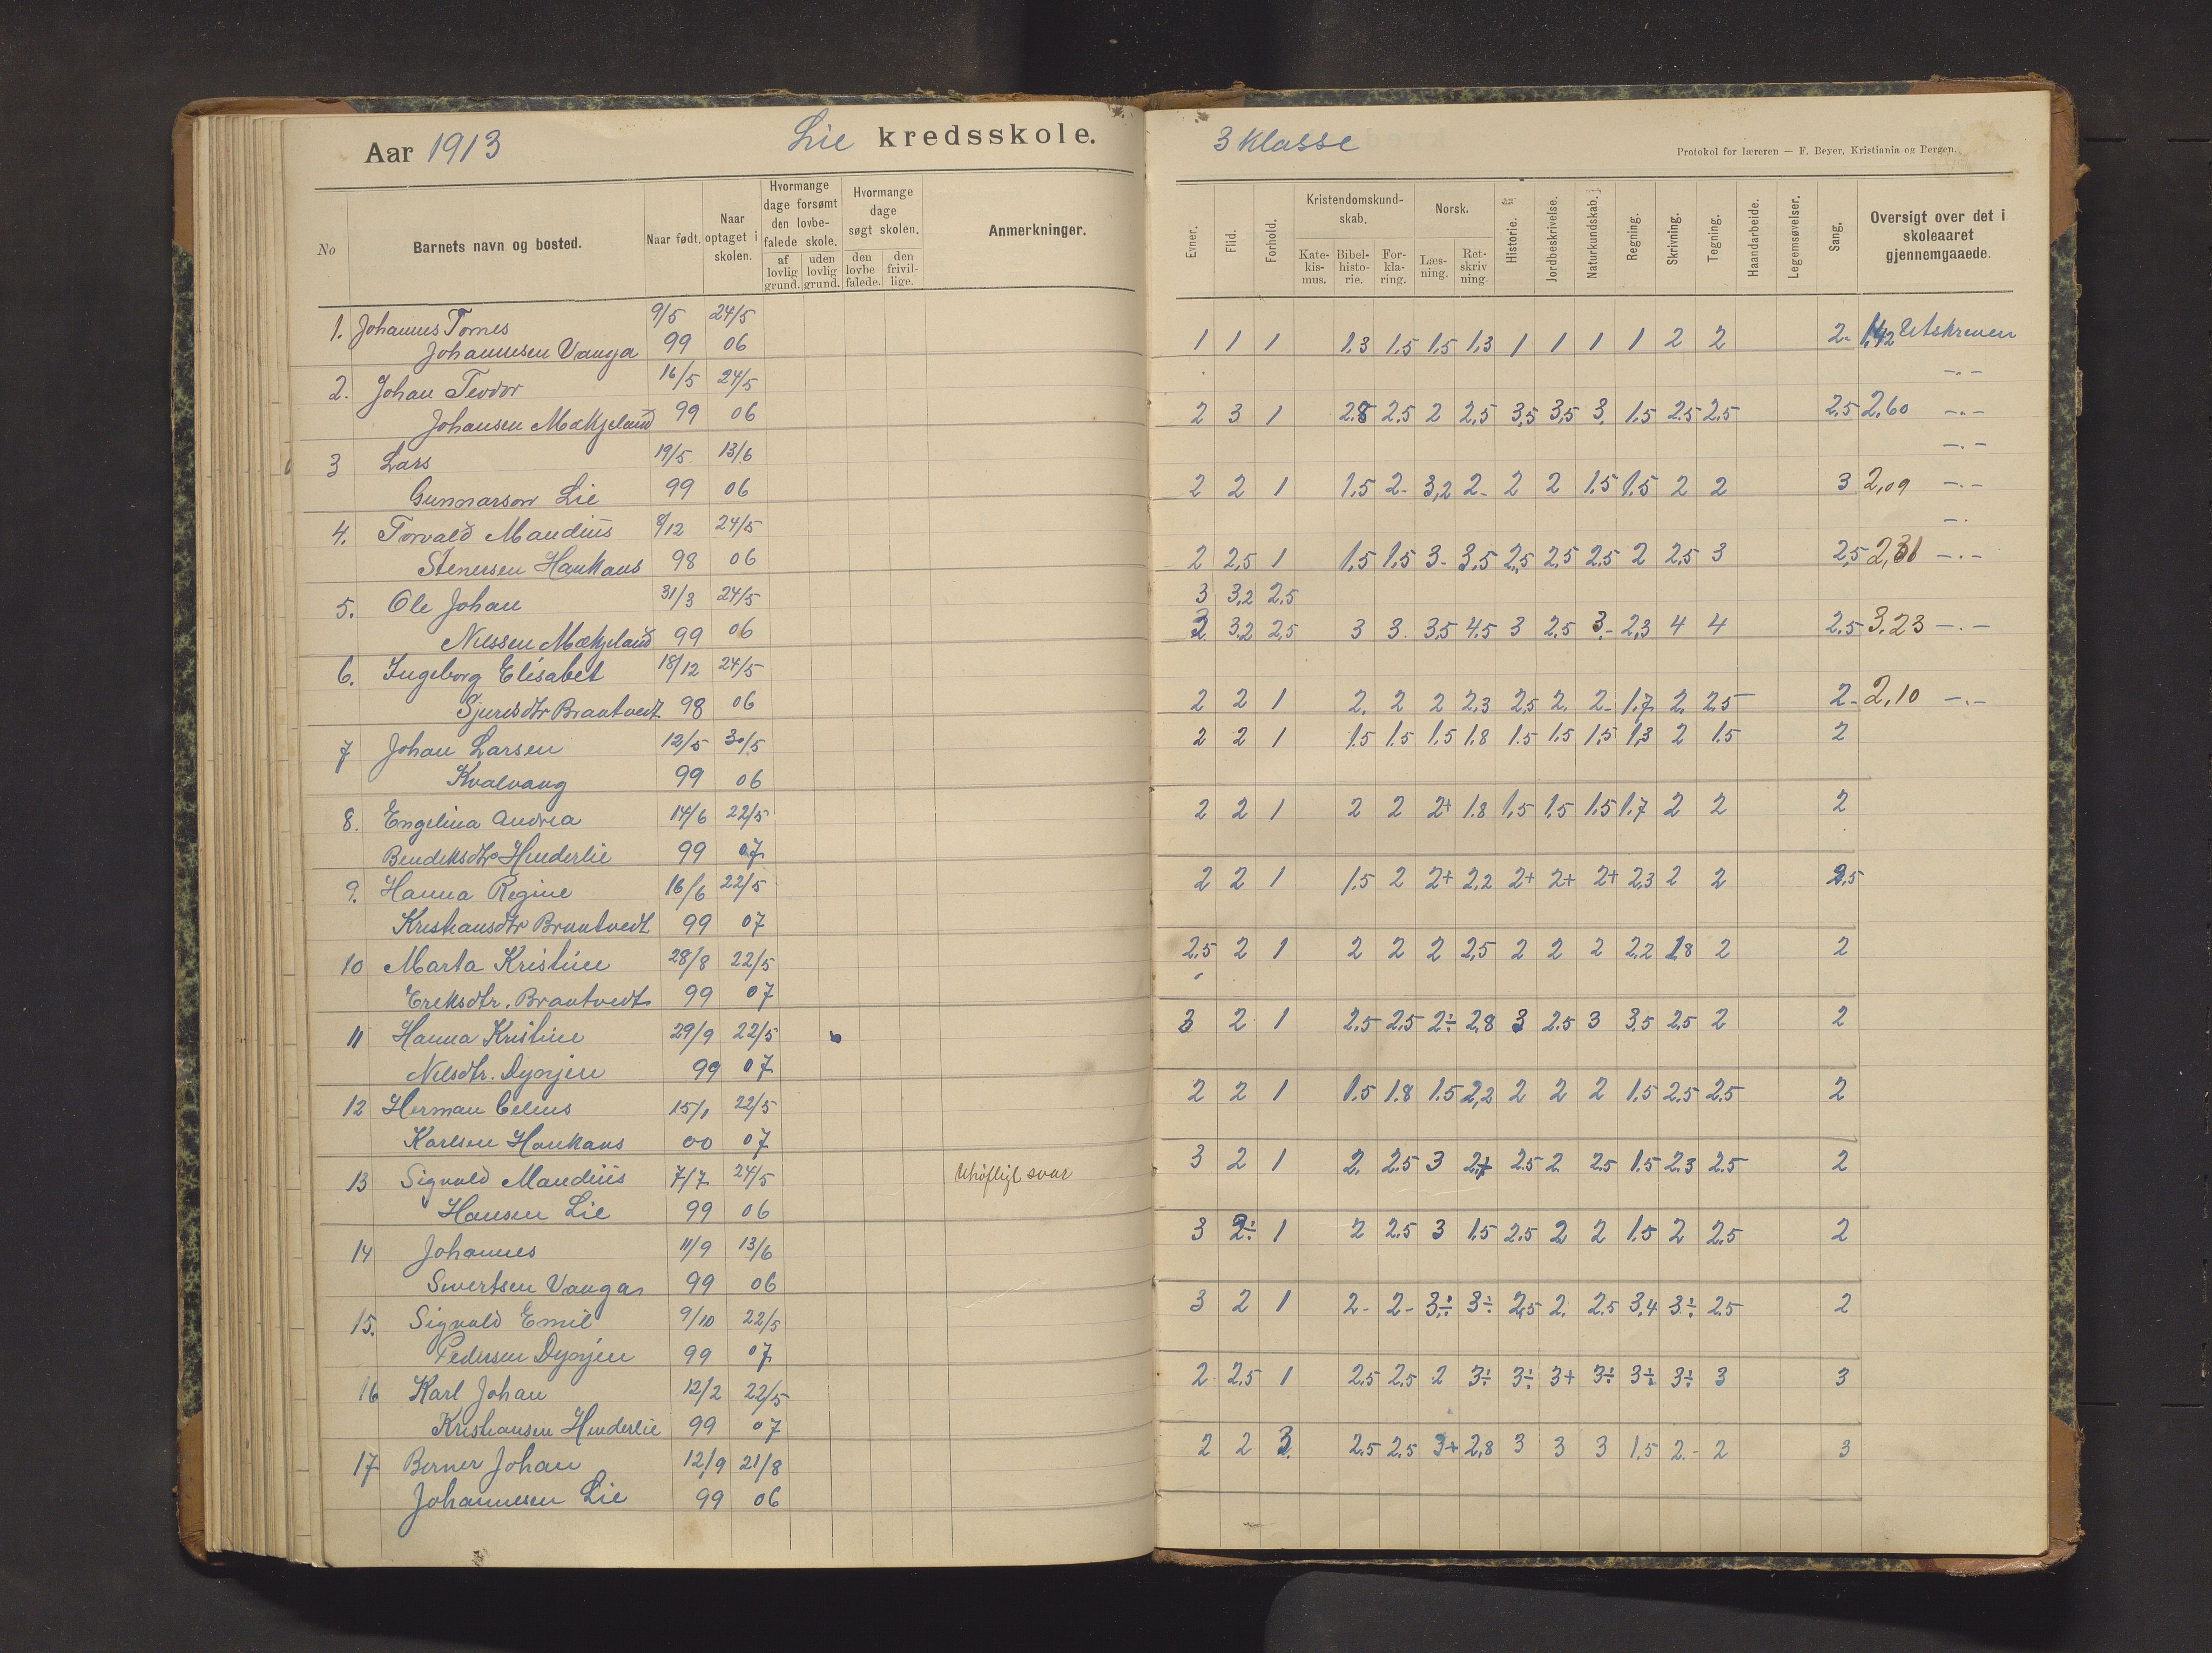 Aar 1913 Lie kredsskole.
No
Barnets navn og bosted.
Naar født.
Naar optaget i skolen.
Hvormange dage forsømt den lovbefalede skole.
af lovlig grund.
uden lovlig grund.
Hvormange dage søgt skolen.
den lovbefalede.
den frivillige.
Anmerkninger.
1. Johannes Tornes 9/5 24/5
Johannesen Vanga 99 06
2. Johan Teodor 16/5 24/5
Johansen Mækjeland 99 06
3 Lars 19/5 13/6
Gunnarson Lie 99 06
4. Torvald Mandius 8/12 24/5
Stenersen Haukaas 98 06
5. Ole Johan 31/3 24/5
Nilssen Mækjeland 99 06
6. Ingeborg Elisabet 18/12 24/5
Sjursdtr Brantvedt 98 06
7 Johan Larsen 12/5 30/5
Kvalvaag 99 06
8. Engelina Andrea 14/6 22/5
Bendiksdtr Hinderlie 99 07
9. Hanna Regine 16/6 22/5
Kristiansdtr Brantvedt 99 07
10 Marta Kristine 28/8 22/5
Ereksdtr. Brantvedt 99 07
11 Hanna Kristine 29/9 22/5
Nilsdtr. Dyosjen 99 07
12 Herman Celius 15/1 22/5
Karlsen Haukaas 00 07
13 Sigvald Mandius 7/7 24/5 Uhøfligt svar
Hansen Lie 99 06
14 Johannes 11/9 13/6
Sivertsen Vanga 99 06
15. Sigvald Emil 9/10 22/5
Pedersen Dyosjen 99 07
16 Karl Johan 12/2 22/5
Kristiansen Hinderlie 99 07
17 Berner Johan 12/9 21/8
Johannesen Lie 99 06
3 Klasse
Protokol for læreren — F. Beyer, Kristiania og Bergen.
Evner.
Flid.
Forhold.
Kristendomskundskab.
Katekismus.
Bibelhistorie.
Forklaring.
Norsk.
Læsning.
Retskrivning.
Historie.
Jordbeskrivelse.
Naturkundskab.
Regning.
Skrivning.
Tegning.
Haandarbeide.
Legemsøvelser.
Sang.
Oversigt over det i skoleaaret gjennemgaaede.
1 1 1 1.3 1.5 1.5 1.3 1 1 1 1 2 2 2- 1,42 Utskreven
—.—
2 3 1 2.8 2.5 2 2,5 3,5 3,5 3. 1.5 2.5 2.5 2,5 2,60 —.—
—.—
2 2 1 1.5 2- 3,2 2- 2 2 1.5 1.5 2 2 3 2,09 —.—
—.
2 2,5 1 1.5 1.5 3- 3,5 2,5 2,5 2.5 2 2,5 3 2,5 2,31 —.—
3 3,2 2,5
3 3,2 2,5 3 3. 3,5 4.5 3 2,5 3.- 2,3 4 4 2.5 3,23 —.—
2 2 1 2. 2 2 2,3 2,5 2. 2- 1.7 2. 2.5 2- 2,10 —.—
2 2 1 1.5 1.5 1.5 1.8 1.5 1.5 1,5 1,3 2 1.5 2
2 2 1 2 2 2+ 1.8 1.5 1.5 1.5 1.7 2 2 2
2 2 1 1.5 2 2+ 2,2 2+ 2+ 2+ 2,3 2 2 2.5
2.5 2 1 2 2 2 2,5 2 2 2 2,2 1.8 2 2
3 2 1 2.5 2.5 2÷ 2,8 3 2.5 3 3.5 2.5 2 2
2 2 1 1.5 1.8 1.5 2,2 2 2 2 1.5 2.5 2.5 2
3 2 1 2. 2.5 3 2+ 2.5 2. 2.5 1.5 2.3 2.5 2
3 2÷ 1 2 2.5 3 1.5 2.5 2 2 1.5 2 2.5 2
3 2 1 2- 2- 3÷ 3÷ 2,5 2. 2.5 3,4 3÷ 2.5 2
2 2.5 1 2.5 2.5 2 3÷ 3÷ 3+ 3÷ 3÷ 3÷ 3 3
2 2 3. 2.5 2.5 3+ 2,8 3 3 3 1.5 2.- 2 3